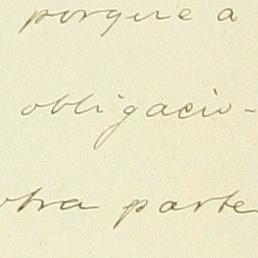 porque a
obligacio-
otra parte